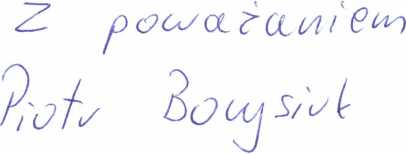 Z poważaniem
Piotr Borysiuk